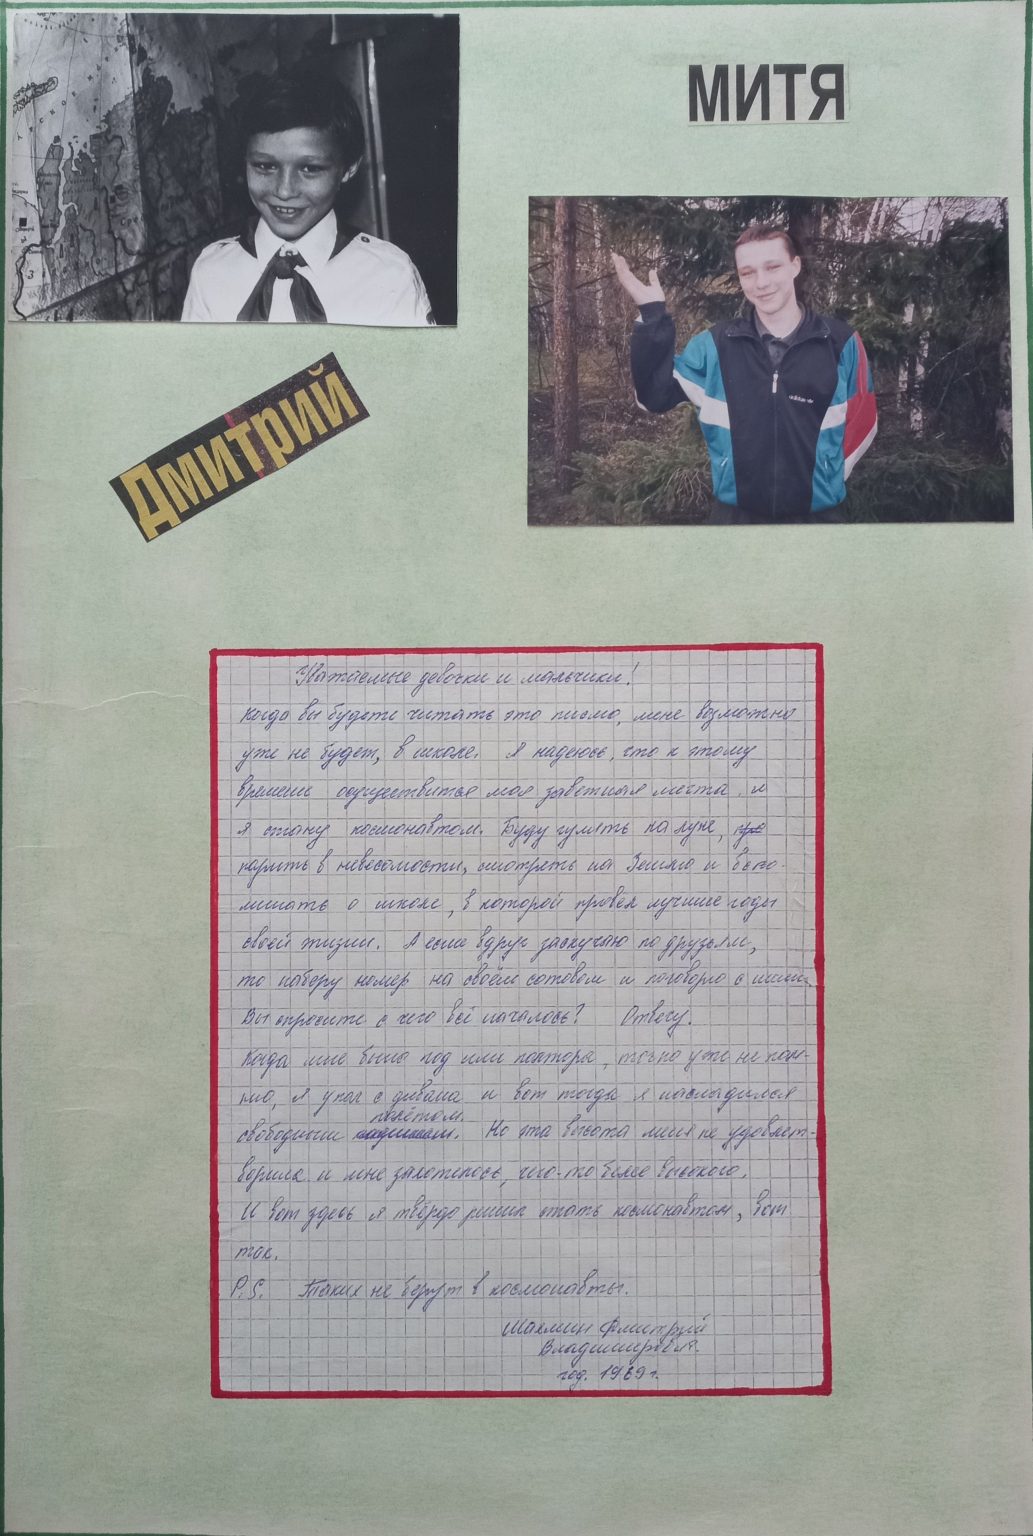 МИТЯ
adidas
Дмитрий
Уважаемые девочки и мальчики!
Когда вы будете читать это письмо, меня возможно
уже не будет, в школе. Я надеюсь, что к этому
времени осуществится моя заветная мечта и
я стану космонавтом. Буду гулять на луне,
парить в невесомости, смотреть на Землю и вспо-
минать о школе, в которой провёл лучшие годы
своей жизни. А если вдруг заскучаю по друзьям,
то наберу номер на своём сотовом и поговорю с ними.
Вы спросите с чего всё началось? Отвечу.
Когда мне было год или полтора, точно уже не пом-
ню, я упал с дивана и вот тогда я насладился
свободным полётом. Но эта высота меня не удовлет-
ворила и мне захотелось, чего-то более высокого.
И вот здесь я твёрдо решил стать космонавтом, вот
так.
P.S. Таких не берут в космонавты.
Дмитрий
Владимирович
год. 1989 г.